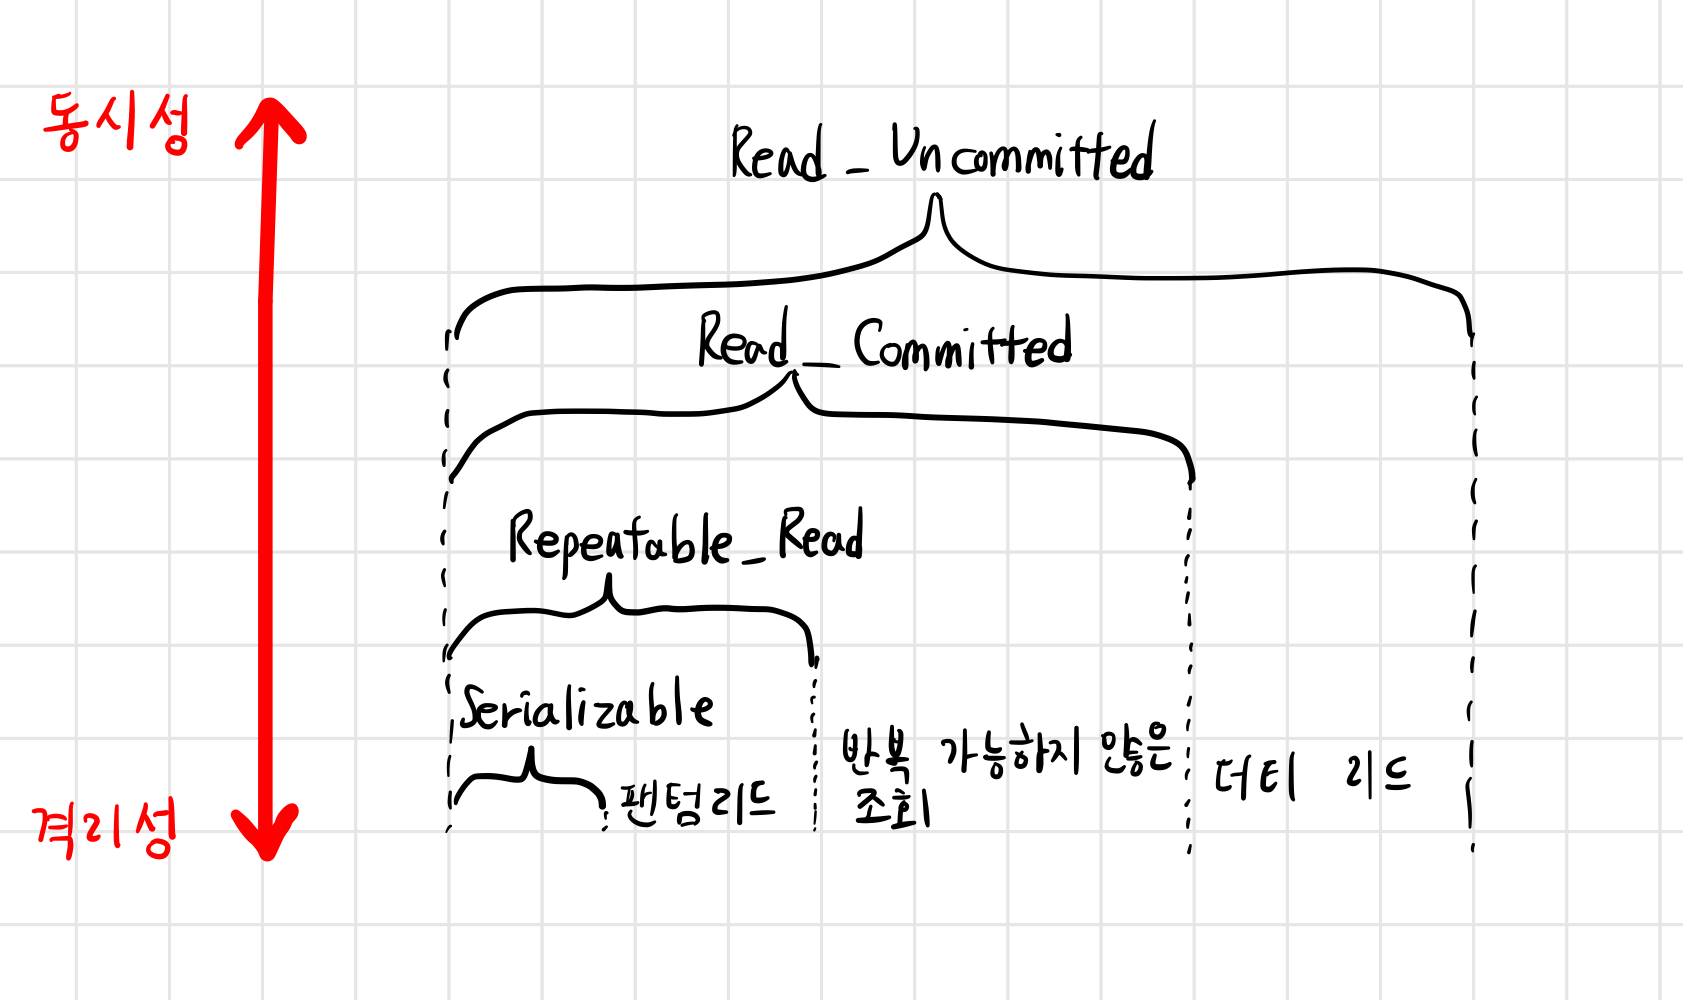 동시성
Read _ Uncommitted
Read _ Committed
Repeatable _ Read
Serializable
팬텀리드
반복 가능하지 않은
조회
더티 리드
격리성